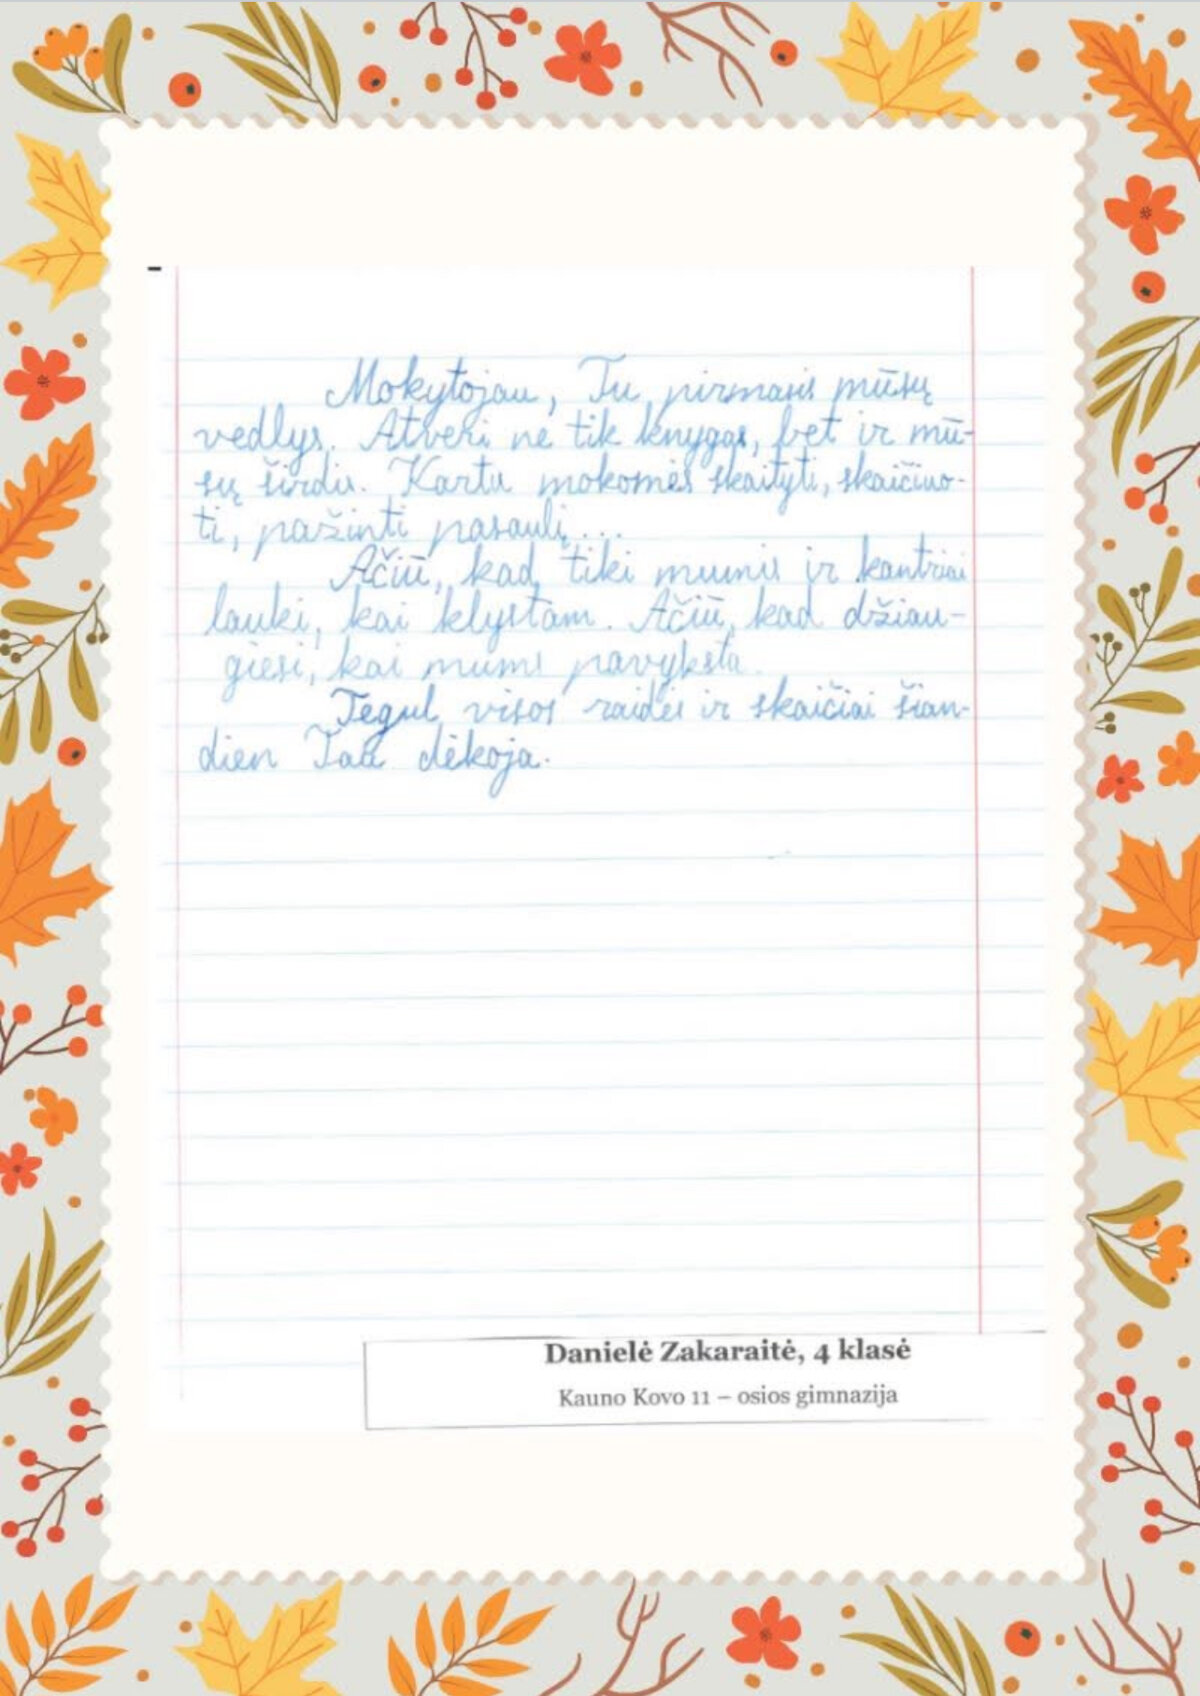 Mokytojau, Tu pirmasis mūsų
vedlys. Atveri ne tik knygas, bet ir mū-
sų širdis. Kartu mokomės skaityti, skaičiuo-
ti, pažinti pasaulį...
Ačiū, kad tiki mumis ir kantriai
lauki, kai klystam. Ačiū, kad džiau-
giesi, kai mums pavyksta.
Tegul visos raidės ir skaičiai šian-
dien Tau dėkoja.
Danielė Zakaraitė, 4 klasė
Kauno Kovo 11 – osios gimnazija